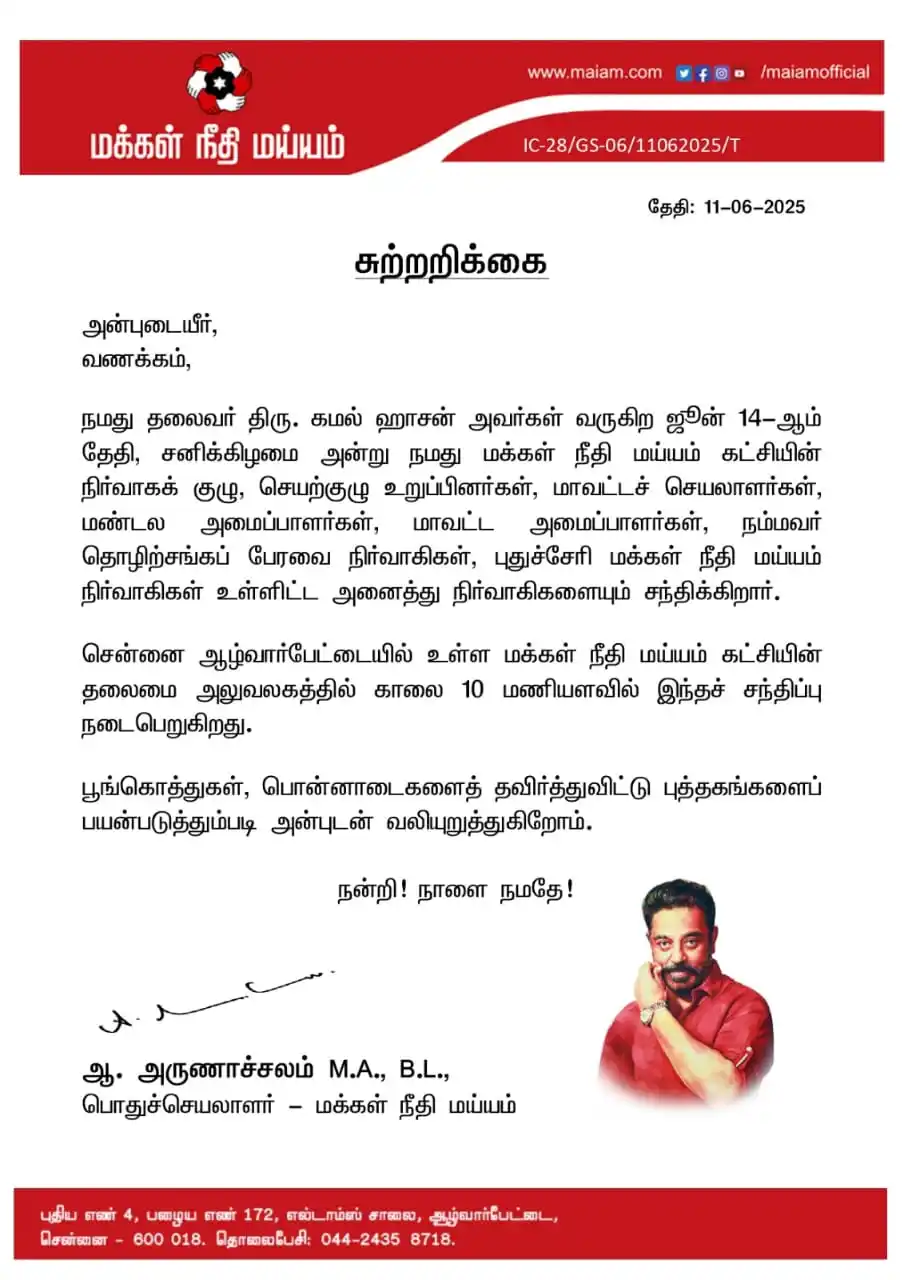 www.maiam.com /maiamofficial
மக்கள் நீதி மய்யம்
IC-28/GS-06/11062025/T
தேதி: 11-06-2025
சுற்றறிக்கை
அன்புடையீர்,
வணக்கம்,
நமது தலைவர் திரு. கமல் ஹாசன் அவர்கள் வருகிற ஜூன் 14-ஆம்
தேதி, சனிக்கிழமை அன்று நமது மக்கள் நீதி மய்யம் கட்சியின்
நிர்வாகக் குழு, செயற்குழு உறுப்பினர்கள், மாவட்டச் செயலாளர்கள்,
மண்டல அமைப்பாளர்கள், மாவட்ட அமைப்பாளர்கள், நம்மவர்
தொழிற்சங்கப் பேரவை நிர்வாகிகள், புதுச்சேரி மக்கள் நீதி மய்யம்
நிர்வாகிகள் உள்ளிட்ட அனைத்து நிர்வாகிகளையும் சந்திக்கிறார்.
சென்னை ஆழ்வார்பேட்டையில் உள்ள மக்கள் நீதி மய்யம் கட்சியின்
தலைமை அலுவலகத்தில் காலை 10 மணியளவில் இந்தச் சந்திப்பு
நடைபெறுகிறது.
பூங்கொத்துகள், பொன்னாடைகளைத் தவிர்த்துவிட்டு புத்தகங்களைப்
பயன்படுத்தும்படி அன்புடன் வலியுறுத்துகிறோம்.
நன்றி! நாளை நமதே!
ஆ. அருணாச்சலம் M.A., B.L.,
பொதுச்செயலாளர் – மக்கள் நீதி மய்யம்
புதிய எண் 4, பழைய எண் 172, எல்டாம்ஸ் சாலை, ஆழ்வார்பேட்டை,
சென்னை - 600 018. தொலைபேசி: 044-2435 8718.